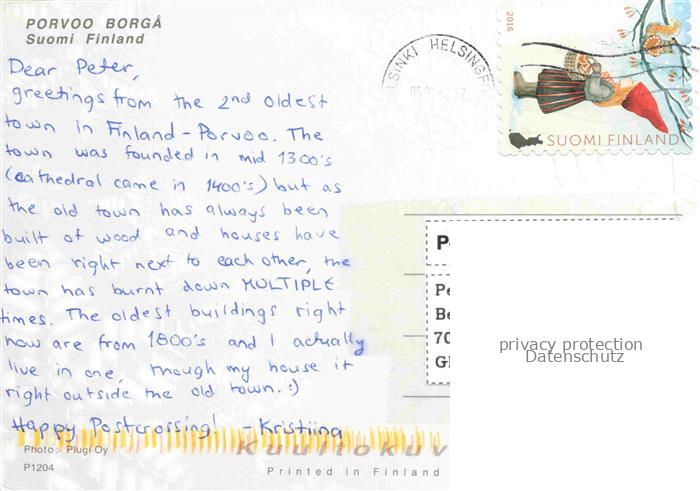 PORVOO BORGÅ
Suomi Finland
Dear Peter,
greetings from the 2nd oldest
town in Finland - Porvoo. The
town was founded in mid 1300's
(cathedral came in 1400's) but as
the old town has always been
built of wood and houses have
been right next to each other, the
town has burnt down MULTIPLE
times. The oldest buildings right
now are from 1800's and I actually
live in one, though my house it
right outside the old town. :)
Happy Postcrossing! - Kristiina
Photo: Plugi Oy
P1204
Kuultokuv
Printed in Finland
HELSINGF
2016
SUOMI FINLAND
P
Pe
Be
70
privacy protection
Datenschutz